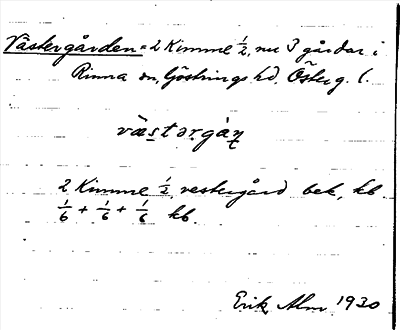 Västergården = 2 Kimme ½, nu 3 gårdar i
Rinna sn, Göstrings hd, Österg. l.
västərgạ̊ṇ
2 Kimme ½ vestergård bek. kb.
⅙ + ⅙ + ⅙ kb.
Erik Alm 1930